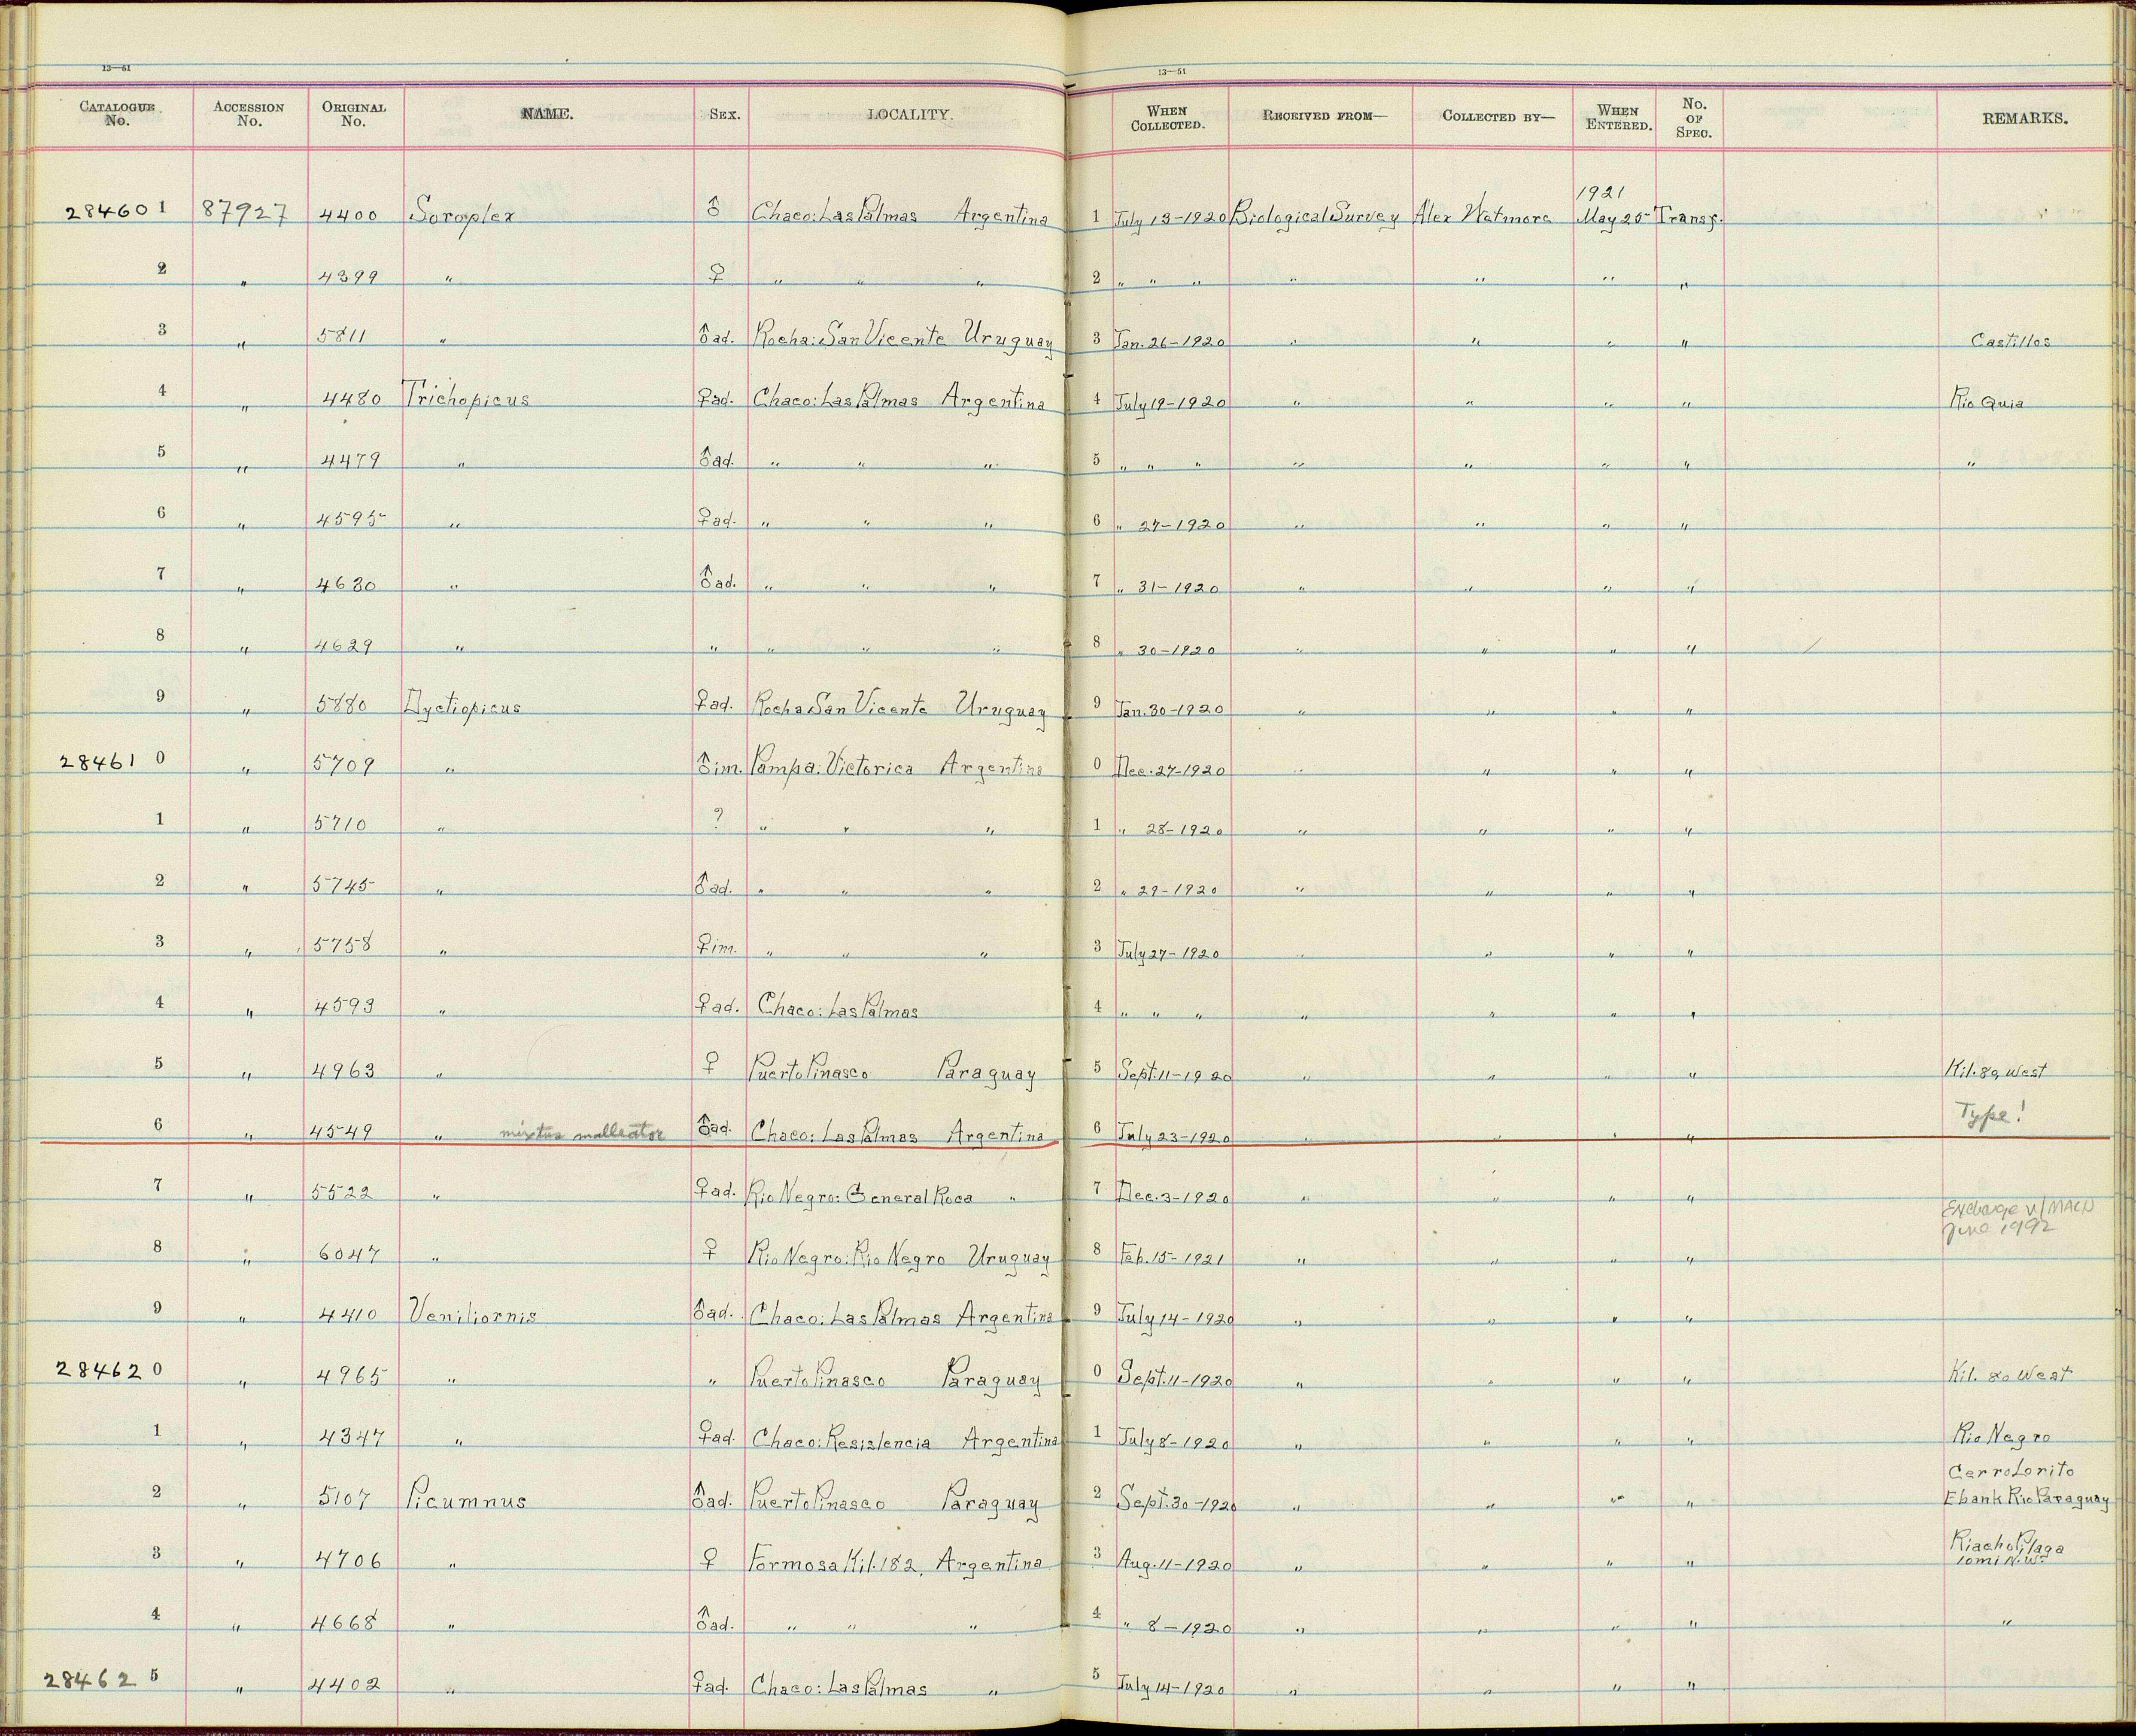 13—51 13—51
CATALOGUE No. ACCESSION No. ORIGINAL No. NAME. SEX. LOCALITY. WHEN COLLECTED. RECEIVED FROM— COLLECTED BY— WHEN ENTERED. No. OF SPEC. REMARKS.
1921
284601 87927 4400 Soroplex ♂ Chaco: Las Palmas Argentina 1 July 13-1920 Biological Survey Alex Wetmore May 25 Transf.
2 " 4399 " ♀ " " " 2 " " " " " " "
3 " 5811 " ♂ad. Rocha: San Vicente Uruguay 3 Jan. 26-1920 " " " " Castillos
4 " 4480 Trichopicus ♀ad. Chaco: Las Palmas Argentina 4 July 19-1920 " " " " Rio Quia
5 " 4479 " ♂ad. " " " 5 " " " " " " " "
6 " 4595 " ♀ad. " " " 6 " 27-1920 " " " "
7 " 4630 " ♂ad. " " " 7 " 31-1920 " " " "
8 " 4629 " " " " " 8 " 30-1920 " " " "
9 " 5880 Dyctiopicus ♀ad. Rocha San Vicente Uruguay 9 Jan. 30-1920 " " " "
284610 " 5709 " ♂im. Pampa: Victorica Argentina 0 Dec. 27-1920 " " " "
1 " 5710 " ? " " " 1 " 28-1920 " " " "
2 " 5745 " ♂ad. " " " 2 " 29-1920 " " " "
3 " 5758 " ♀im. " " " 3 July 27-1920 " " " "
4 " 4593 " ♀ad. Chaco: Las Palmas 4 " " " " " " "
5 " 4963 " ♀ Puerto Pinasco Paraguay 5 Sept. 11-1920 " " " " Kil. 80, West
6 " 4549 " mixtus malleator ♂ad. Chaco: Las Palmas Argentina 6 July 23-1920 " " " " Type!
7 " 5522 " ♀ad. Rio Negro: General Roca " 7 Dec. 3-1920 " " " "
Exchange w/MACN
June 1992
8 " 6047 " ♀ Rio Negro: Rio Negro Uruguay 8 Feb. 15-1921 " " " "
9 " 4410 Veniliornis ♂ad. Chaco: Las Palmas Argentina 9 July 14-1920 " " " "
284620 " 4965 " " Puerto Pinasco Paraguay 0 Sept. 11-1920 " " " " Kil. 80 West
1 " 4347 " ♀ad Chaco: Resistencia Argentina 1 July 8-1920 " " " " Rio Negro
Cerro Lorito
2 " 5107 Picumnus ♂ad. Puerto Pinasco Paraguay 2 Sept. 30-1920 " " " " E bank Rio Paraguay
Riacho Pilaga
3 " 4706 " ♀ Formosa Kil. 182, Argentina 3 Aug. 11-1920 " " " " 10 mi N.W.
4 " 4668 " ♂ad. " " " 4 " 8-1920 " " " " "
284625 " 4402 " ♀ad. Chaco: Las Palmas " 5 July 14-1920 " " " "